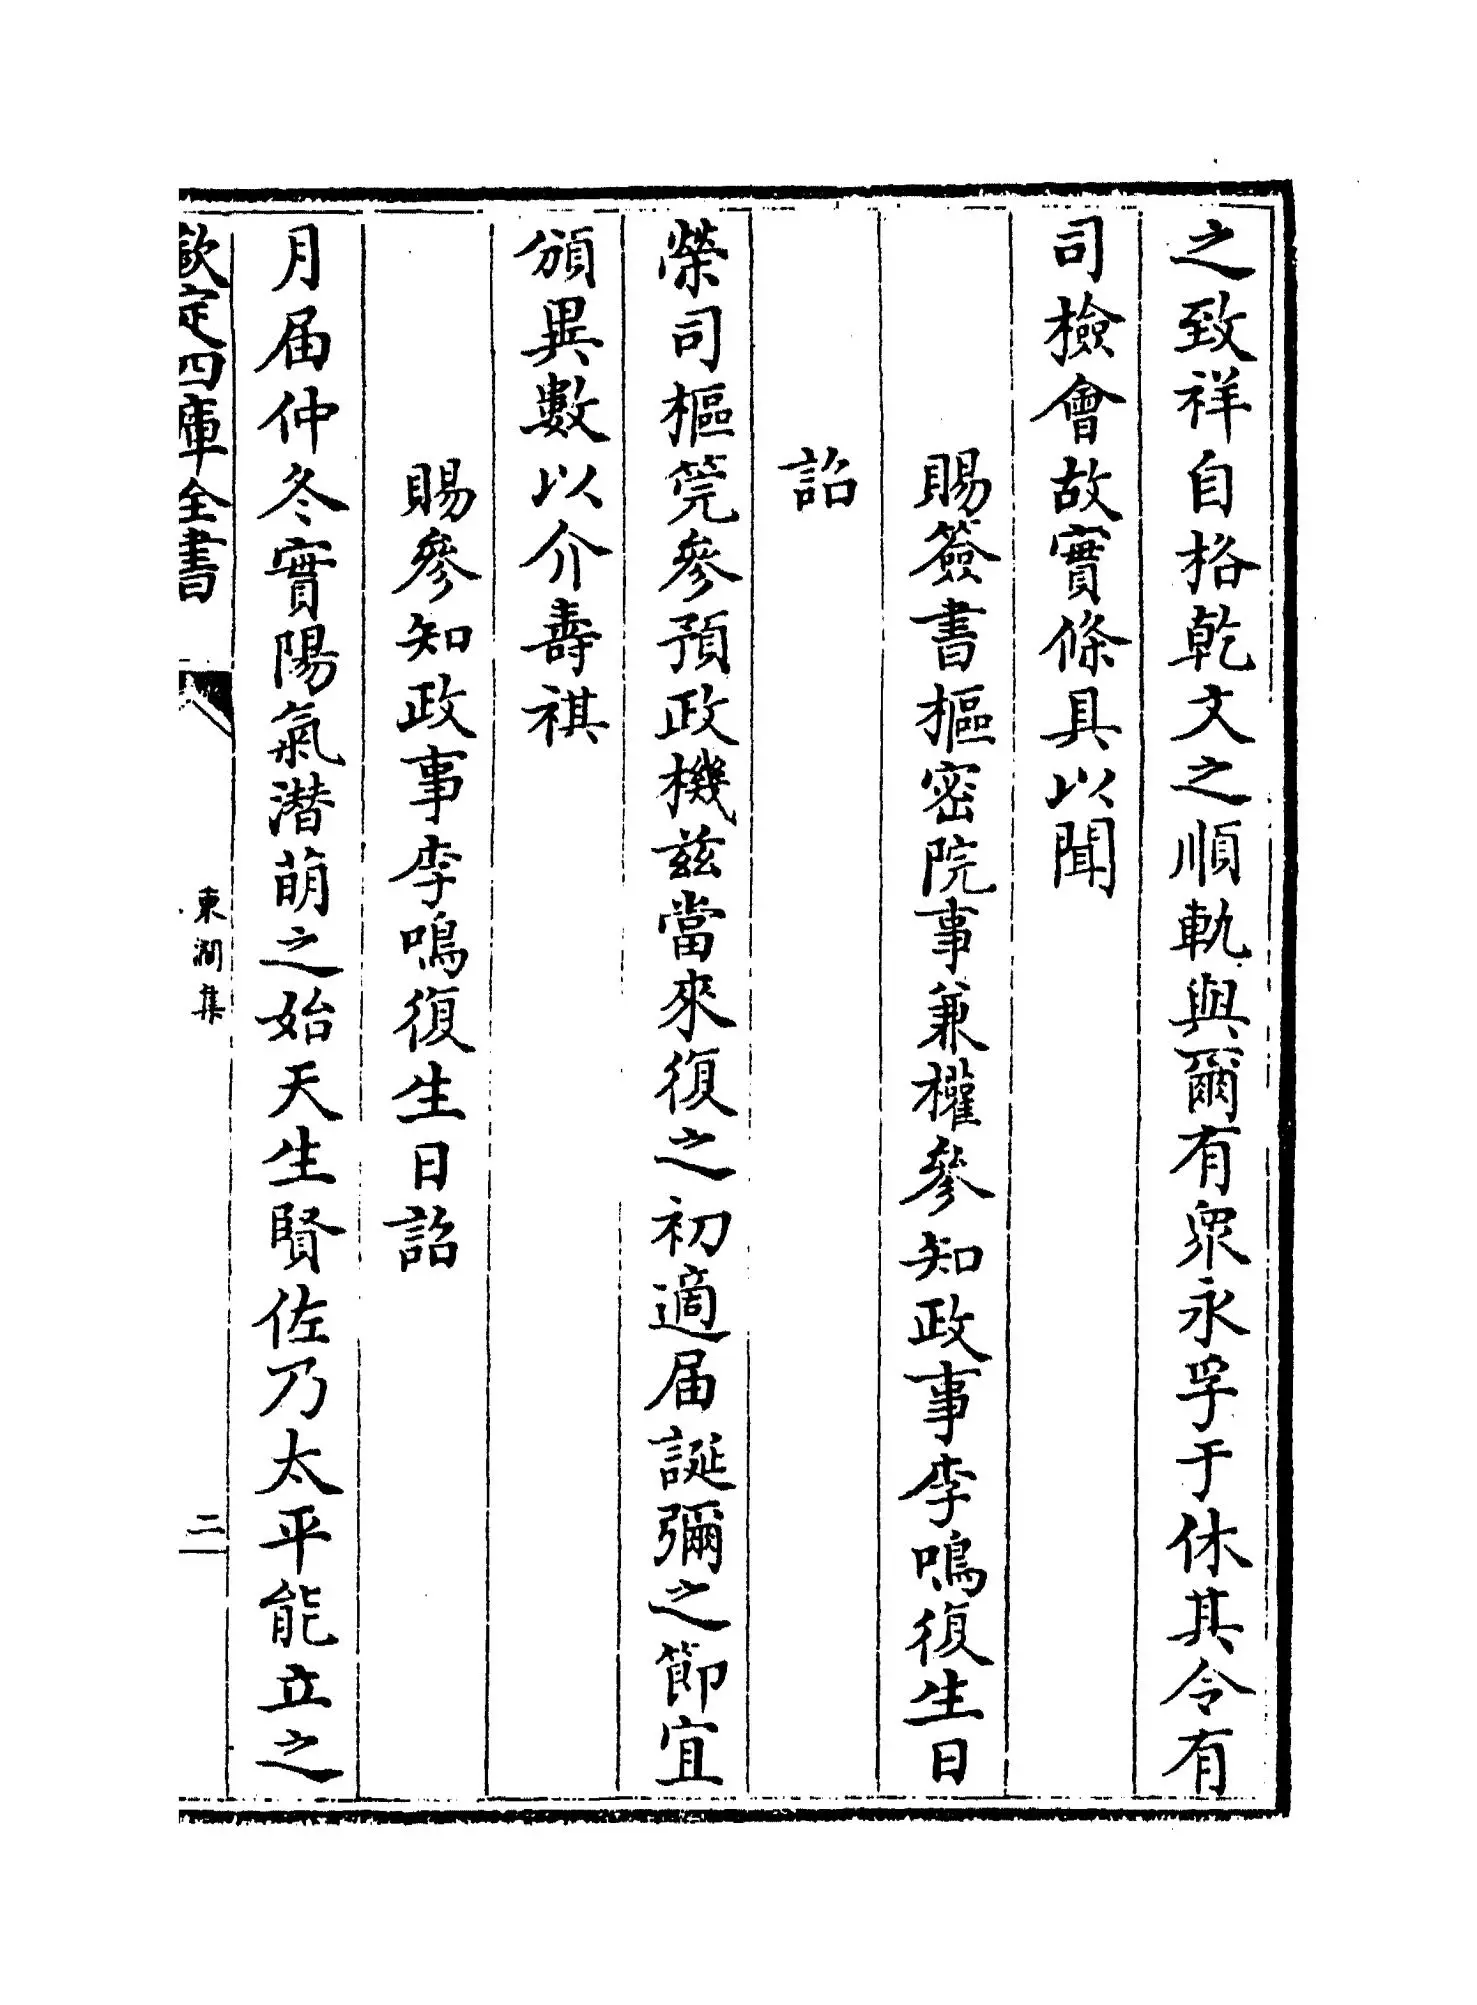 之致祥自格乾文之順軌與爾有衆永孚于休其令有
司檢會故實條具以聞
賜簽書樞密院事兼權參知政事李鳴復生日
詔
榮司樞筦參預政機茲當來復之初適届誕彌之節宜
頒異數以介壽祺
賜參知政事李鳴復生日詔
月届仲冬實陽氣潜萌之始天生賢佐乃太平能立之
欽定四庫全書
東澗集
二